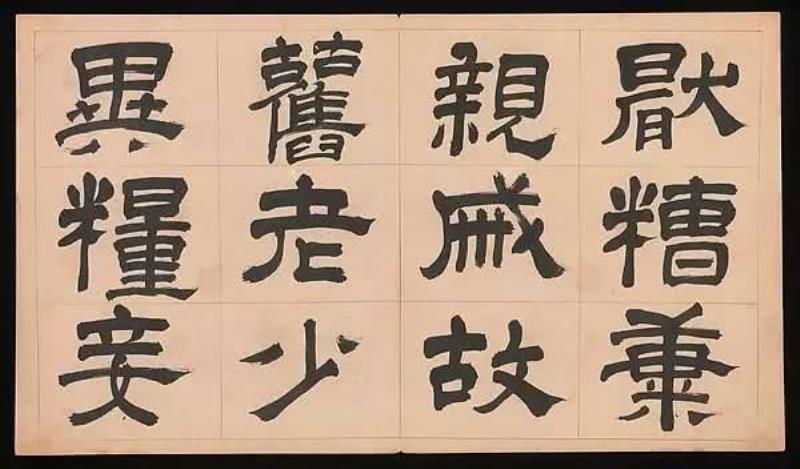 猒糟康
親戚故
舊老少
異糧妾